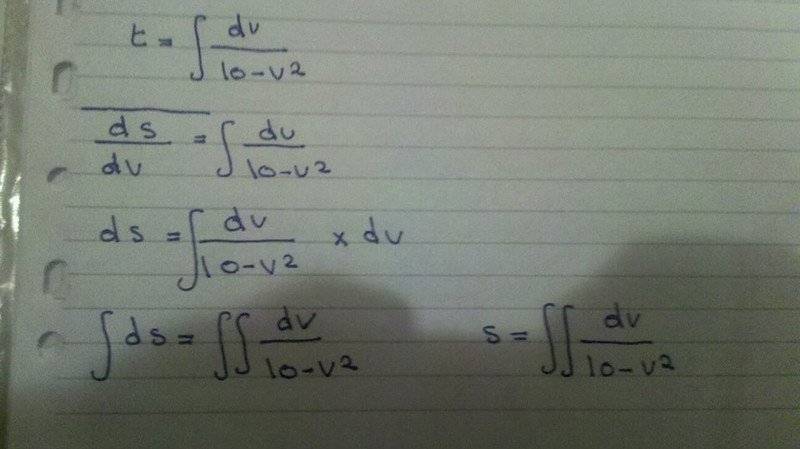 t = ∫ dv/(10-v²)
ds/dv = ∫ dv/(10-v²)
ds = ∫ dv/(10-v²) × dv
∫ds = ∫∫ dv/(10-v²) s = ∫∫ dv/(10-v²)